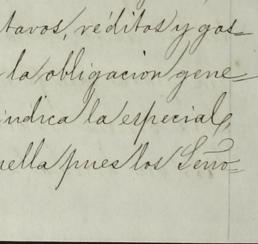 tavos, réditos y gas-
la obligacion gene-
indica la especial,
ella pues los Seño-